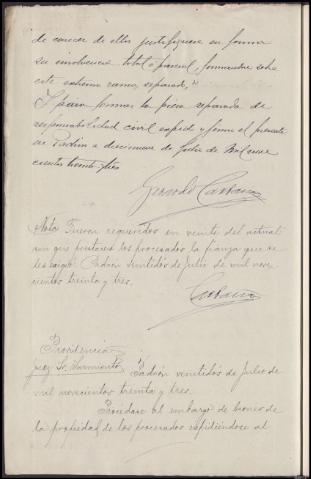 de carecer de ellos justifíquese en forma
su insolvencia total o parcial, formándose sobre
este extremo ramo separado,"
Y para formar la pieza separada de
responsabilidad civil expido y firmo el presente
en Padrón a diecinueve de Julio de mil nove
cientos treinta y tres
Gerardo
Nota. Fueron requeridos en veinte del actual
sin que prestaren los procesados la fianza que se
les exigió. Padrón veintidós de Julio de mil nove
cientos treinta y tres.
Providencia
Juez Sr. Sarmiento. Padrón veintidós de Julio de
mil novecientos treinta y tres.
Procédase al embargo de bienes de
la propiedad de los procesados expidiéndose al